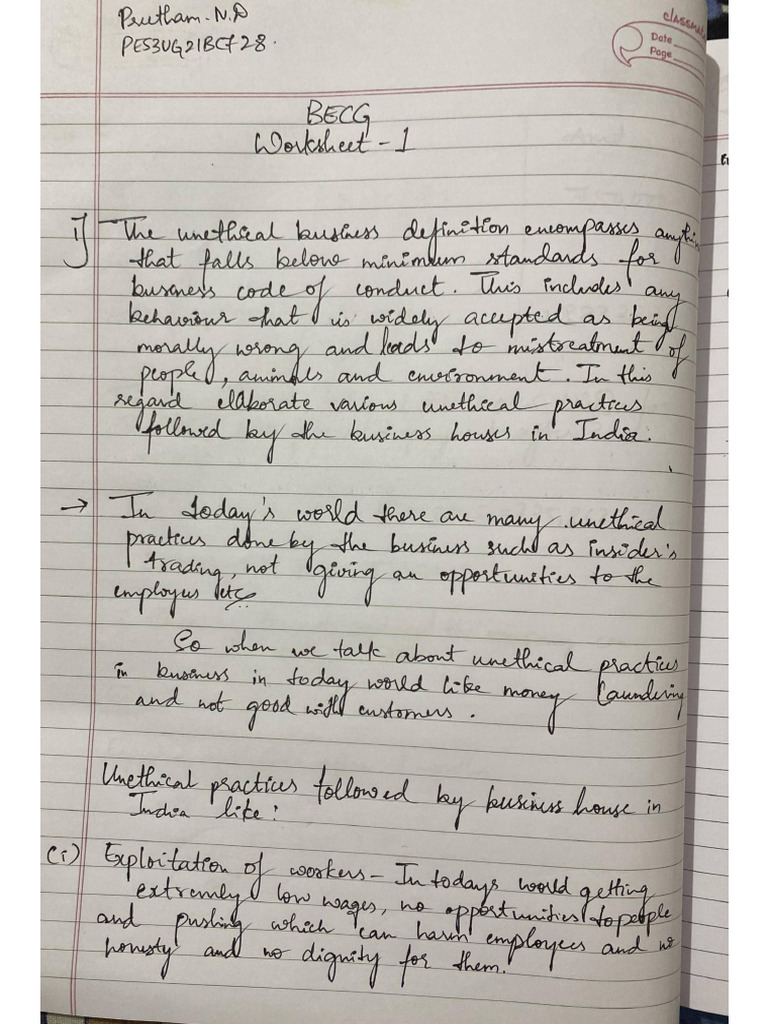 Preetham.N.D
PES3UG21BCF28.
classmate
Date
Page
BECG
Worksheet - 1
1) The unethical business definition encompasses anythin
that falls below minimum standards for
business code of conduct. This includes any
behaviour that is widely accepted as being
morally wrong and leads to mistreatment of
people, animals and environment. In this
regard elaborate various unethical practices
followed by the business houses in India.
→ In today's world there are many unethical
practices done by the business such as insider's
trading, not giving an opportunities to the
employees etc
So when we talk about unethical practices
in business in today world like money laundering
and not good with customers.
Unethical practices followed by business house in
India like:
(i) Exploitation of workers - In todays world getting
extremly low wages, no opportunities to people
and pushing which can harm employees and no
honesty and no dignity for them.